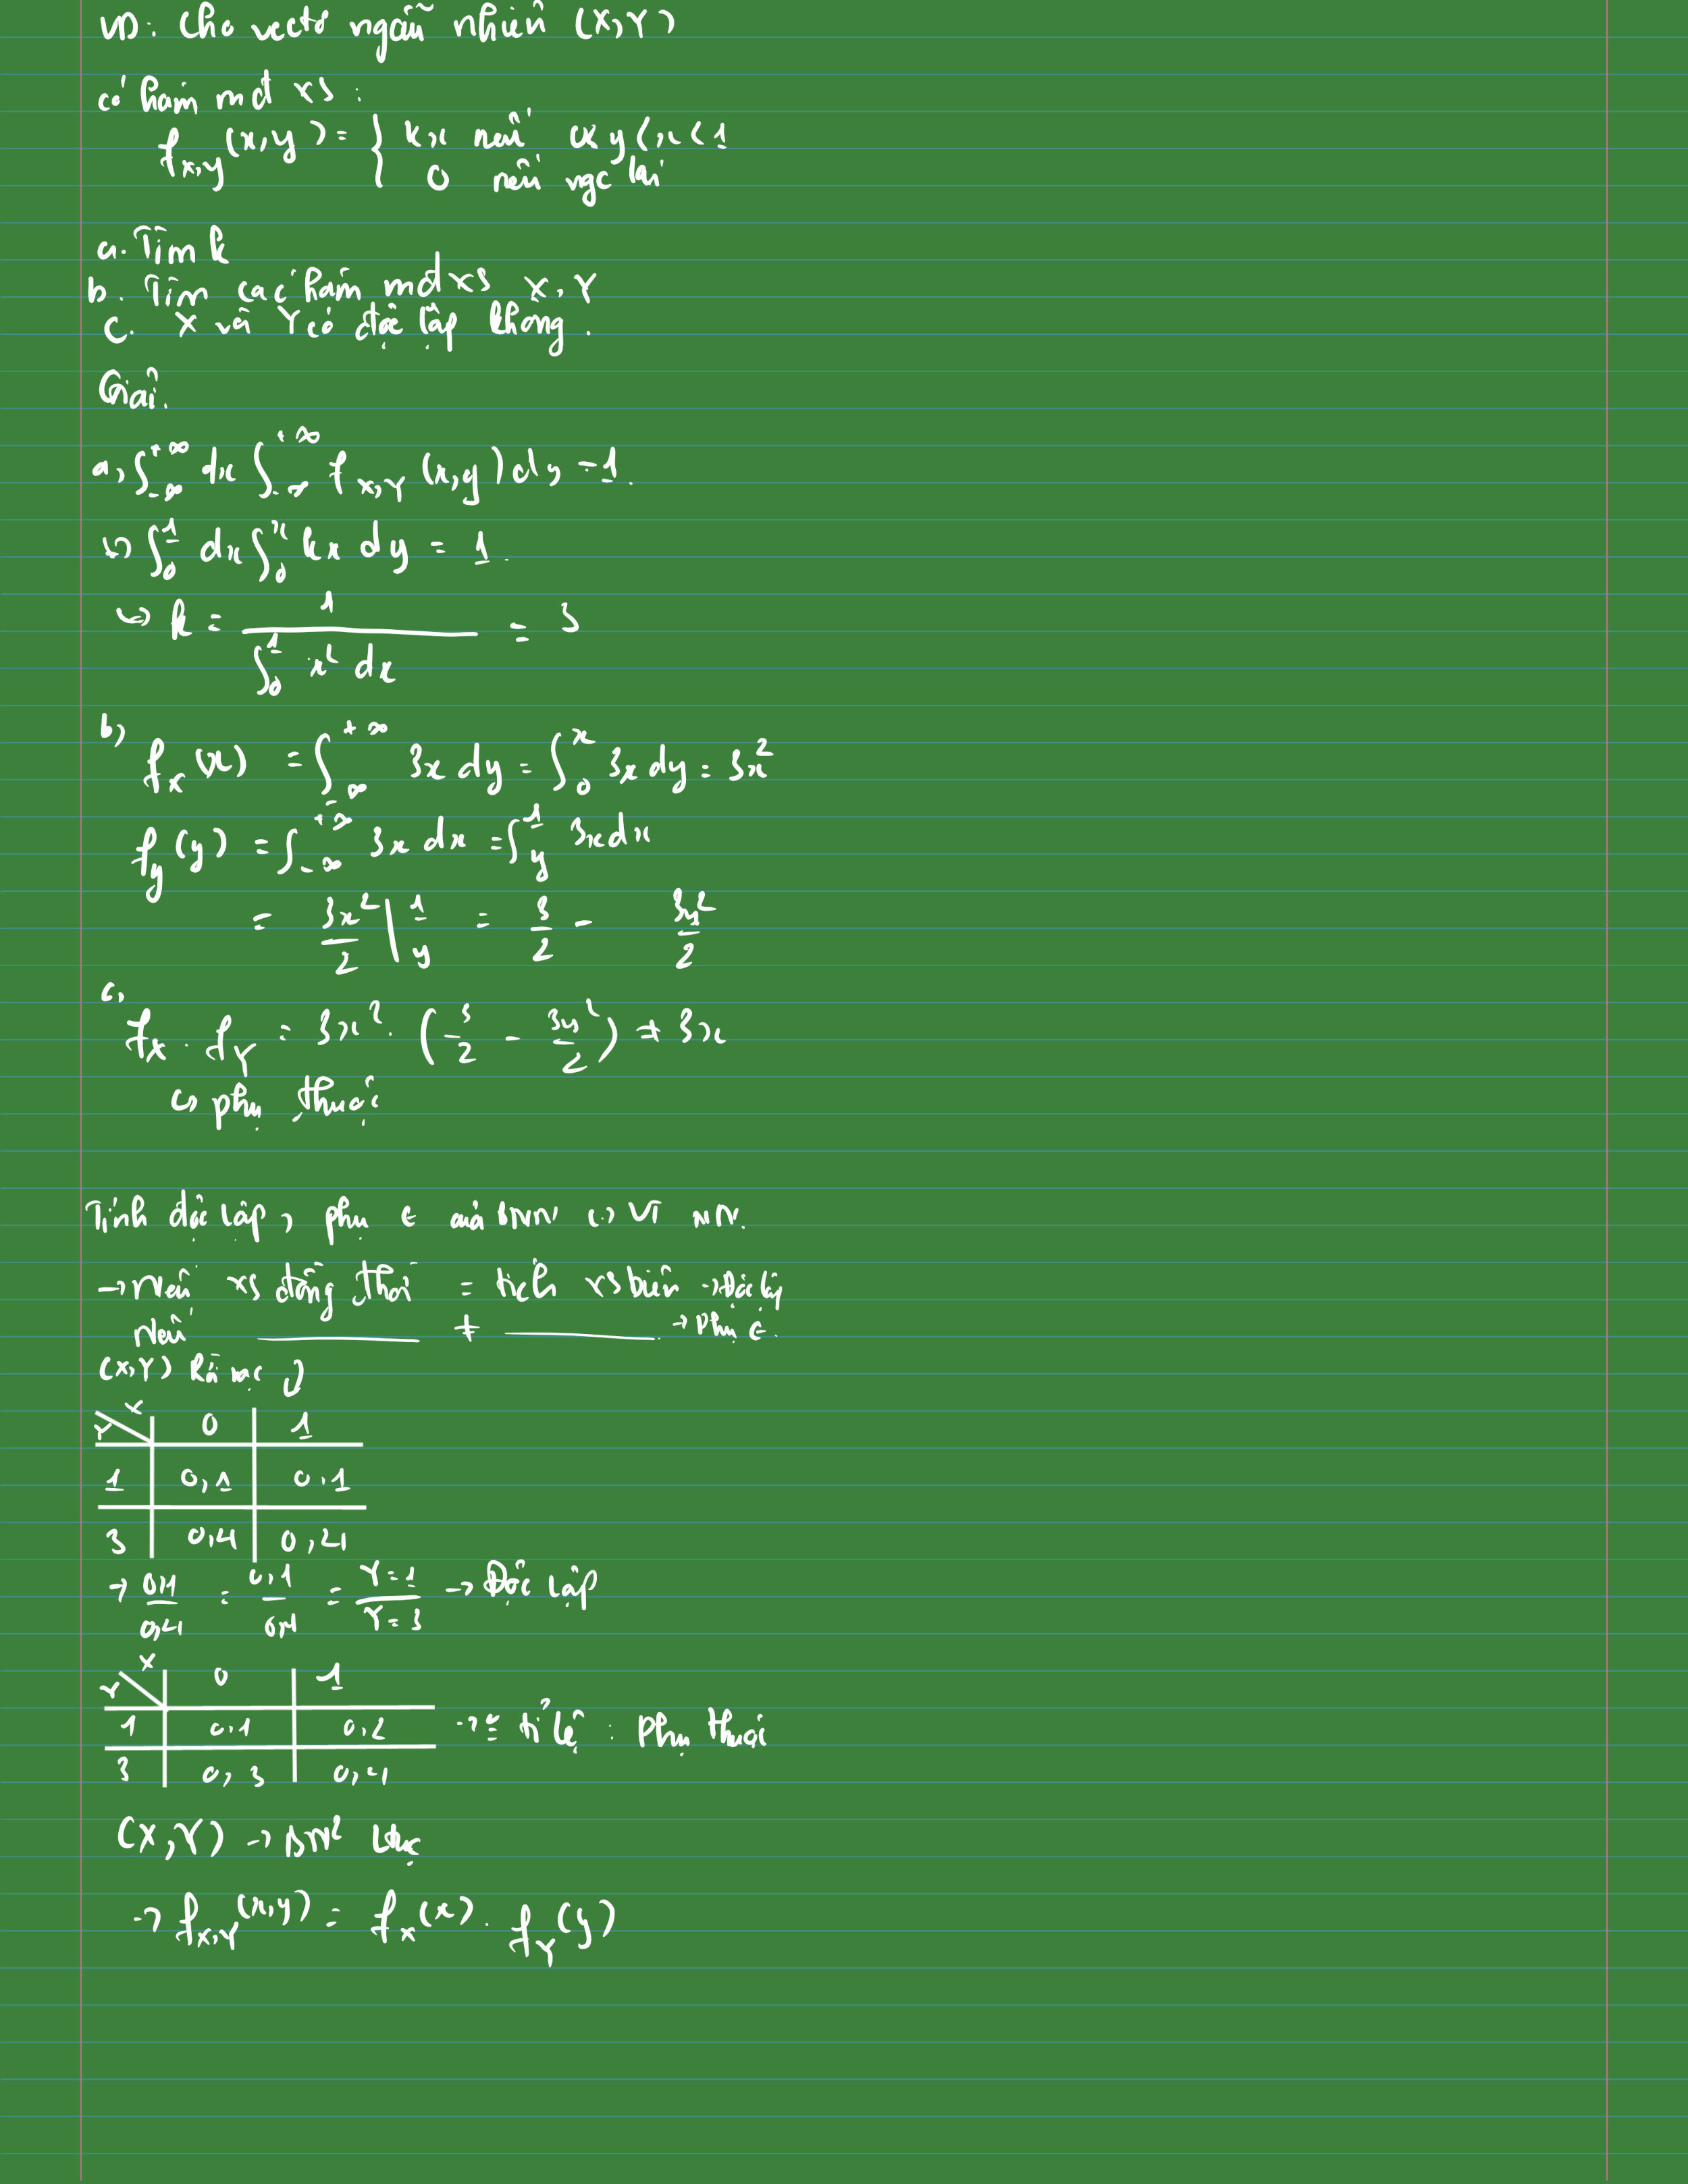 VD: Cho vectơ ngẫu nhiên (X,Y)
có hàm mđ xs:
f_{X,Y}(x,y) = { kx nếu 0< y < x < 1
0 nếu ngc lại
a. Tìm k
b. Tìm các hàm mđ xs X, Y
c. X và Y có độc lập không.
Giải.
a, ∫_{-∞}^{+∞} dx ∫_{-∞}^{+∞} f_{X,Y}(x,y) dy = 1.
⇔ ∫_0^1 dx ∫_0^x kx dy = 1.
⇔ k = 1 / ∫_0^1 x² dx = 3
b,
f_X(x) = ∫_{-∞}^{+∞} 3x dy = ∫_0^x 3x dy = 3x²
f_y(y) = ∫_{-∞}^{+∞} 3x dx = ∫_y^1 3x dx
= 3x²/2 |_y^1 = 3/2 - 3y²/2
c,
f_X . f_Y = 3x² . (3/2 - 3y²/2) ≠ 3x
↪ phụ thuộc
Tính độc lập, phụ t của bnn VT NN.
→ Nếu xs đồng thời = tích xs biên → Độc lập
Nếu ——— ≠ ——— → Phụ t
(X,Y) Rời rạc
Y X 0 1
1 0,1 0,1
3 0,4 0,4
→ 0,1/0,4 = 0,1/0,4 = Y=1/Y=3 → Độc lập
Y X 0 1
1 0,1 0,2 → ≠ tỉ lệ: Phụ thuộc
3 0,3 0,4
(X,Y) → NN² Ltục
→ f_{X,Y}(x,y) = f_X(x) . f_Y(y)